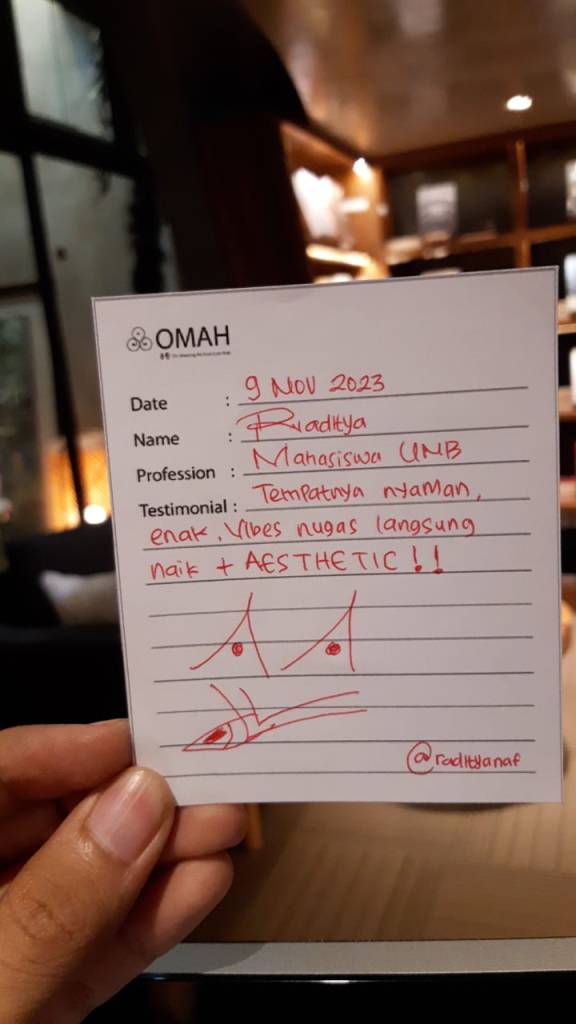 OMAH
Date : 9 NOV 2023
Name : Raditya
Profession : Mahasiswa UMB
Testimonial : Tempatnya nyaman,
enak, Vibes nugas langsung
naik + AESTHETIC!!
@radityanaf